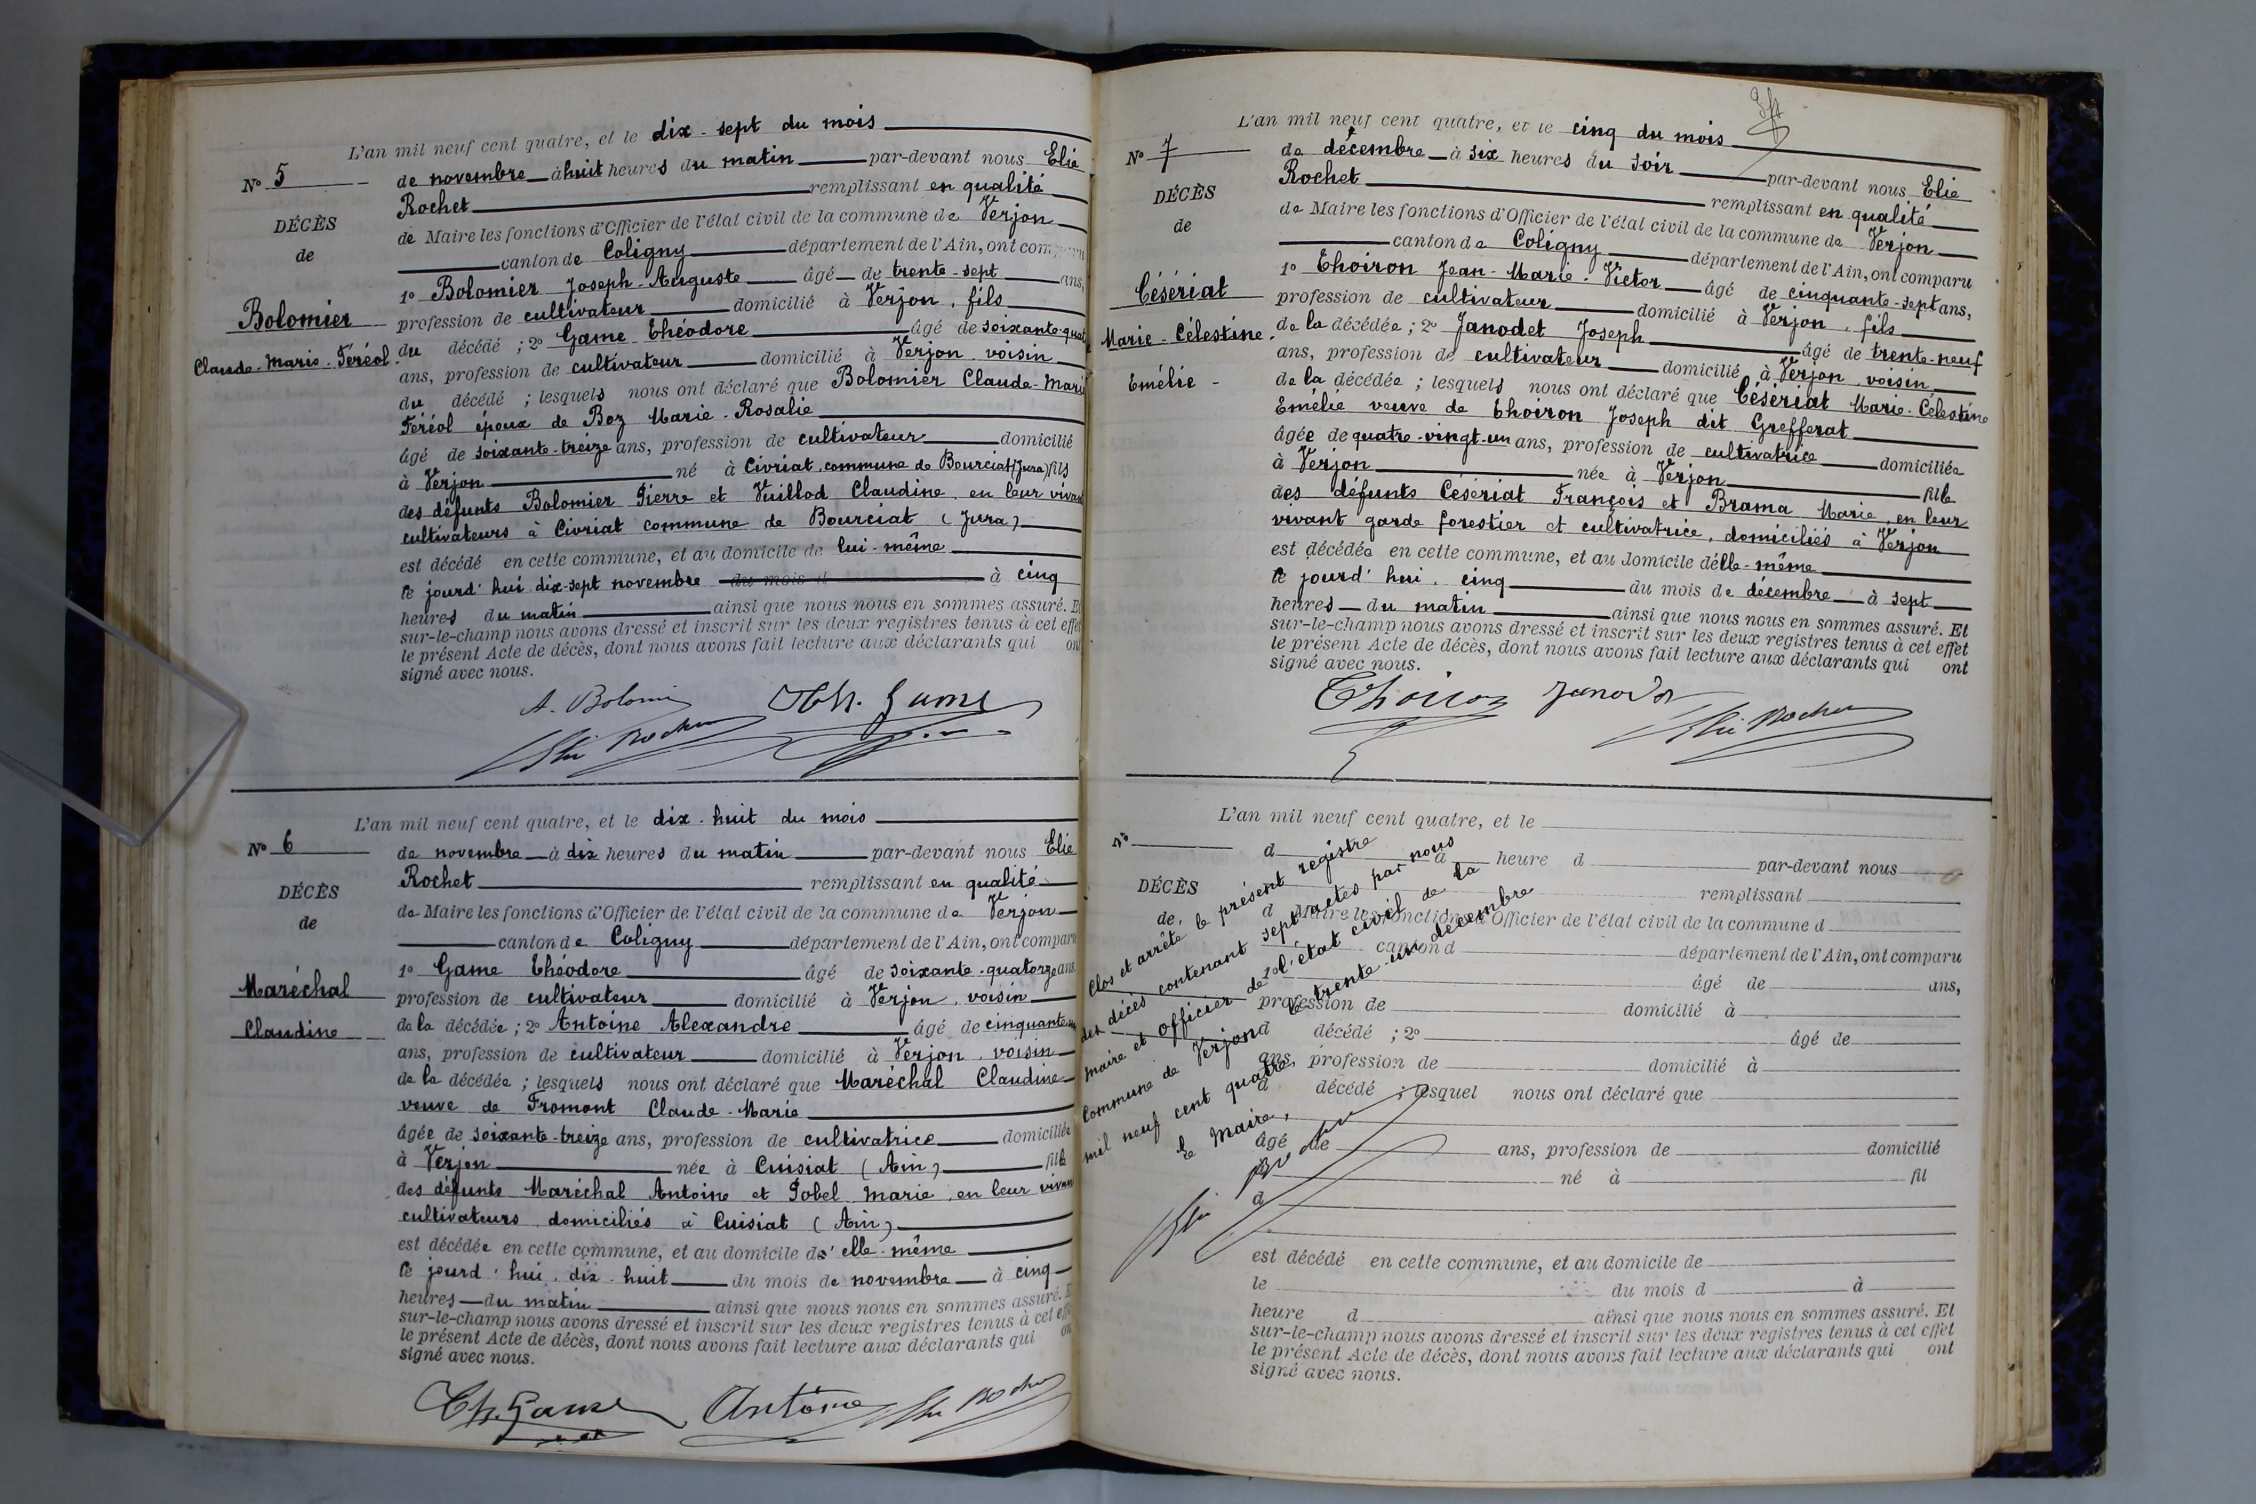 L'an mil neuf cent quatre, et le dix-sept du mois
N° 5
de novembre à huit heures du matin par-devant nous Elie
Rochet remplissant en qualité
DÉCÈS
de Maire les fonctions d'Officier de l'état civil de la commune de Verjon
de
canton de Coligny département de l'Ain, ont comparu
1° Bolomier Joseph-Auguste âgé de trente-sept ans,
Bolomier
profession de cultivateur domicilié à Verjon, fils
Claude-Marie-Féréol
du décédé ; 2° Game Théodore âgé de soixante-quat
ans, profession de cultivateur domicilié à Verjon, voisin
du décédé ; lesquels nous ont déclaré que Bolomier Claude-Marie
Féréol époux de Boz Marie-Rosalie
âgé de soixante-treize ans, profession de cultivateur domicilié
à Verjon né à Civriat, commune de Bourciat (Jura) fils
des défunts Bolomier Pierre et Vuillod Claudine, en leur vivant
cultivateurs à Civriat commune de Bourciat (Jura)
est décédé en cette commune, et au domicile de lui-même
le jourd'hui dix-sept novembre du mois d à cinq
heures du matin ainsi que nous nous en sommes assuré. Et
sur-le-champ nous avons dressé et inscrit sur les deux registres tenus à cet effet
le présent Acte de décès, dont nous avons fait lecture aux déclarants qui ont
signé avec nous.
A. Bolomi Th. Game
Elie Rochet
L'an mil neuf cent quatre, et le dix-huit du mois
N° 6
de novembre à dix heures du matin par-devant nous Elie
Rochet remplissant en qualité
DÉCÈS
de Maire les fonctions d'Officier de l'état civil de la commune de Verjon
de
canton de Coligny département de l'Ain, ont comparu
1° Game Théodore âgé de soixante-quatorze ans
Maréchal
profession de cultivateur domicilié à Verjon, voisin
Claudine
de la décédée ; 2° Antoine Alexandre âgé de cinquante-un
ans, profession de cultivateur domicilié à Verjon, voisin
de la décédée ; lesquels nous ont déclaré que Maréchal Claudine
veuve de Fromont Claude-Marie
âgée de soixante-treize ans, profession de cultivatrice domiciliée
à Verjon née à Cuisiat (Ain) fille
des défunts Maréchal Antoine et Pobel Marie, en leur vivant
cultivateurs domiciliés à Cuisiat (Ain)
est décédée en cette commune, et au domicile d'elle-même
le jourd'hui, dix-huit du mois de novembre à cinq
heures du matin ainsi que nous nous en sommes assuré. E
sur-le-champ nous avons dressé et inscrit sur les deux registres tenus à cet effe
le présent Acte de décès, dont nous avons fait lecture aux déclarants qui on
signé avec nous.
Th. Game Antoine Elie Rochet
L'an mil neuf cent quatre, et le cinq du mois
N° 7
de décembre à six heures du soir par-devant nous Elie
Rochet remplissant en qualité
DÉCÈS
de Maire les fonctions d'Officier de l'état civil de la commune de Verjon
de
canton de Coligny département de l'Ain, ont comparu
1° Thoiron Jean-Marie-Victor âgé de cinquante-sept ans,
Césériat
profession de cultivateur domicilié à Verjon, fils
Marie-Célestine
de la décédée ; 2° Janodet Joseph âgé de trente-neuf
ans, profession de cultivateur domicilié à Verjon, voisin
Emélie
de la décédée ; lesquels nous ont déclaré que Césériat Marie-Célestine
Emélie veuve de Thoiron Joseph dit Grefferat
âgée de quatre-vingt-un ans, profession de cultivatrice domiciliée
à Verjon née à Verjon fille
des défunts Césériat François et Brama Marie, en leur
vivant garde forestier et cultivatrice, domiciliés à Verjon
est décédée en cette commune, et au domicile d'elle-même
le jourd'hui, cinq du mois de décembre à sept
heures du matin ainsi que nous nous en sommes assuré. Et
sur-le-champ nous avons dressé et inscrit sur les deux registres tenus à cet effet
le présent Acte de décès, dont nous avons fait lecture aux déclarants qui ont
signé avec nous.
Thoiron Janodet Elie Rochet
L'an mil neuf cent quatre, et le
N°
d à heure d par-devant nous
remplissant
DÉCÈS
d Maire les fonctions d'Officier de l'état civil de la commune d
de
canton d département de l'Ain, ont comparu
1° âgé de ans,
profession de domicilié à
d décédé ; 2° âgé de
ans, profession de domicilié à
d décédé ; lesquel nous ont déclaré que
âgé de ans, profession de domicilié
à né à fil
d
est décédé en cette commune, et au domicile de
le du mois d à
heure d ainsi que nous nous en sommes assuré. Et
sur-le-champ nous avons dressé et inscrit sur les deux registres tenus à cet effet
le présent Acte de décès, dont nous avons fait lecture aux déclarants qui ont
signé avec nous.
Clos et arrêté le présent registre
des décès contenant sept actes par nous
maire et officier de l'état civil de la
commune de Verjon le trente-un décembre
mil neuf cent quatre,
Le Maire,
Elie Rochet